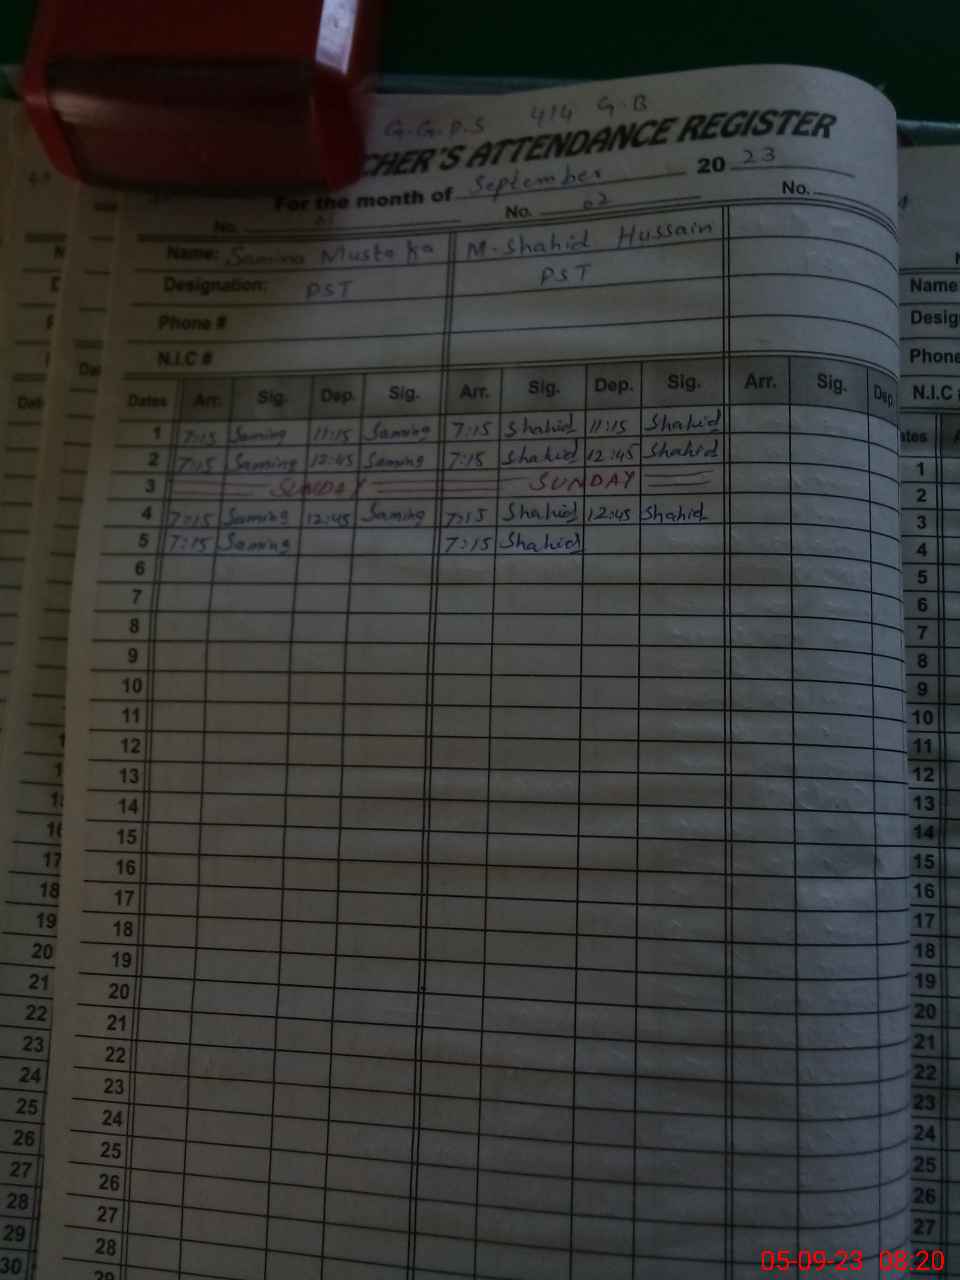 G.G.P.S 414 G.B
CHER'S ATTENDANCE REGISTER
For the month of September 20 23
No. No. 02 No.
Name: Samina Mustafa M. Shahid Hussain
Designation: PST PST
Phone #
N.I.C #
Dates Arr. Sig. Dep. Sig. Arr. Sig. Dep. Sig. Arr. Sig. Dep.
1 7:15 Samina 11:15 Samina 7:15 Shahid 11:15 Shahid
2 7:15 Samina 12:45 Samina 7:15 Shahid 12:45 Shahid
3 SUNDAY SUNDAY
4 7:15 Samina 12:45 Samina 7:15 Shahid 12:45 Shahid
5 7:15 Samina 7:15 Shahid
6
7
8
9
10
11
12
13
14
15
16
17
18
19
20
21
22
23
24
25
26
27
28
29
Name
Desig
Phone
N.I.C
ates
1
2
3
4
5
6
7
8
9
10
11
12
13
14
15
16
17
18
19
20
21
22
23
24
25
26
27
17
18
19
20
21
22
23
24
25
26
27
28
29
30
05-09-23 08:20